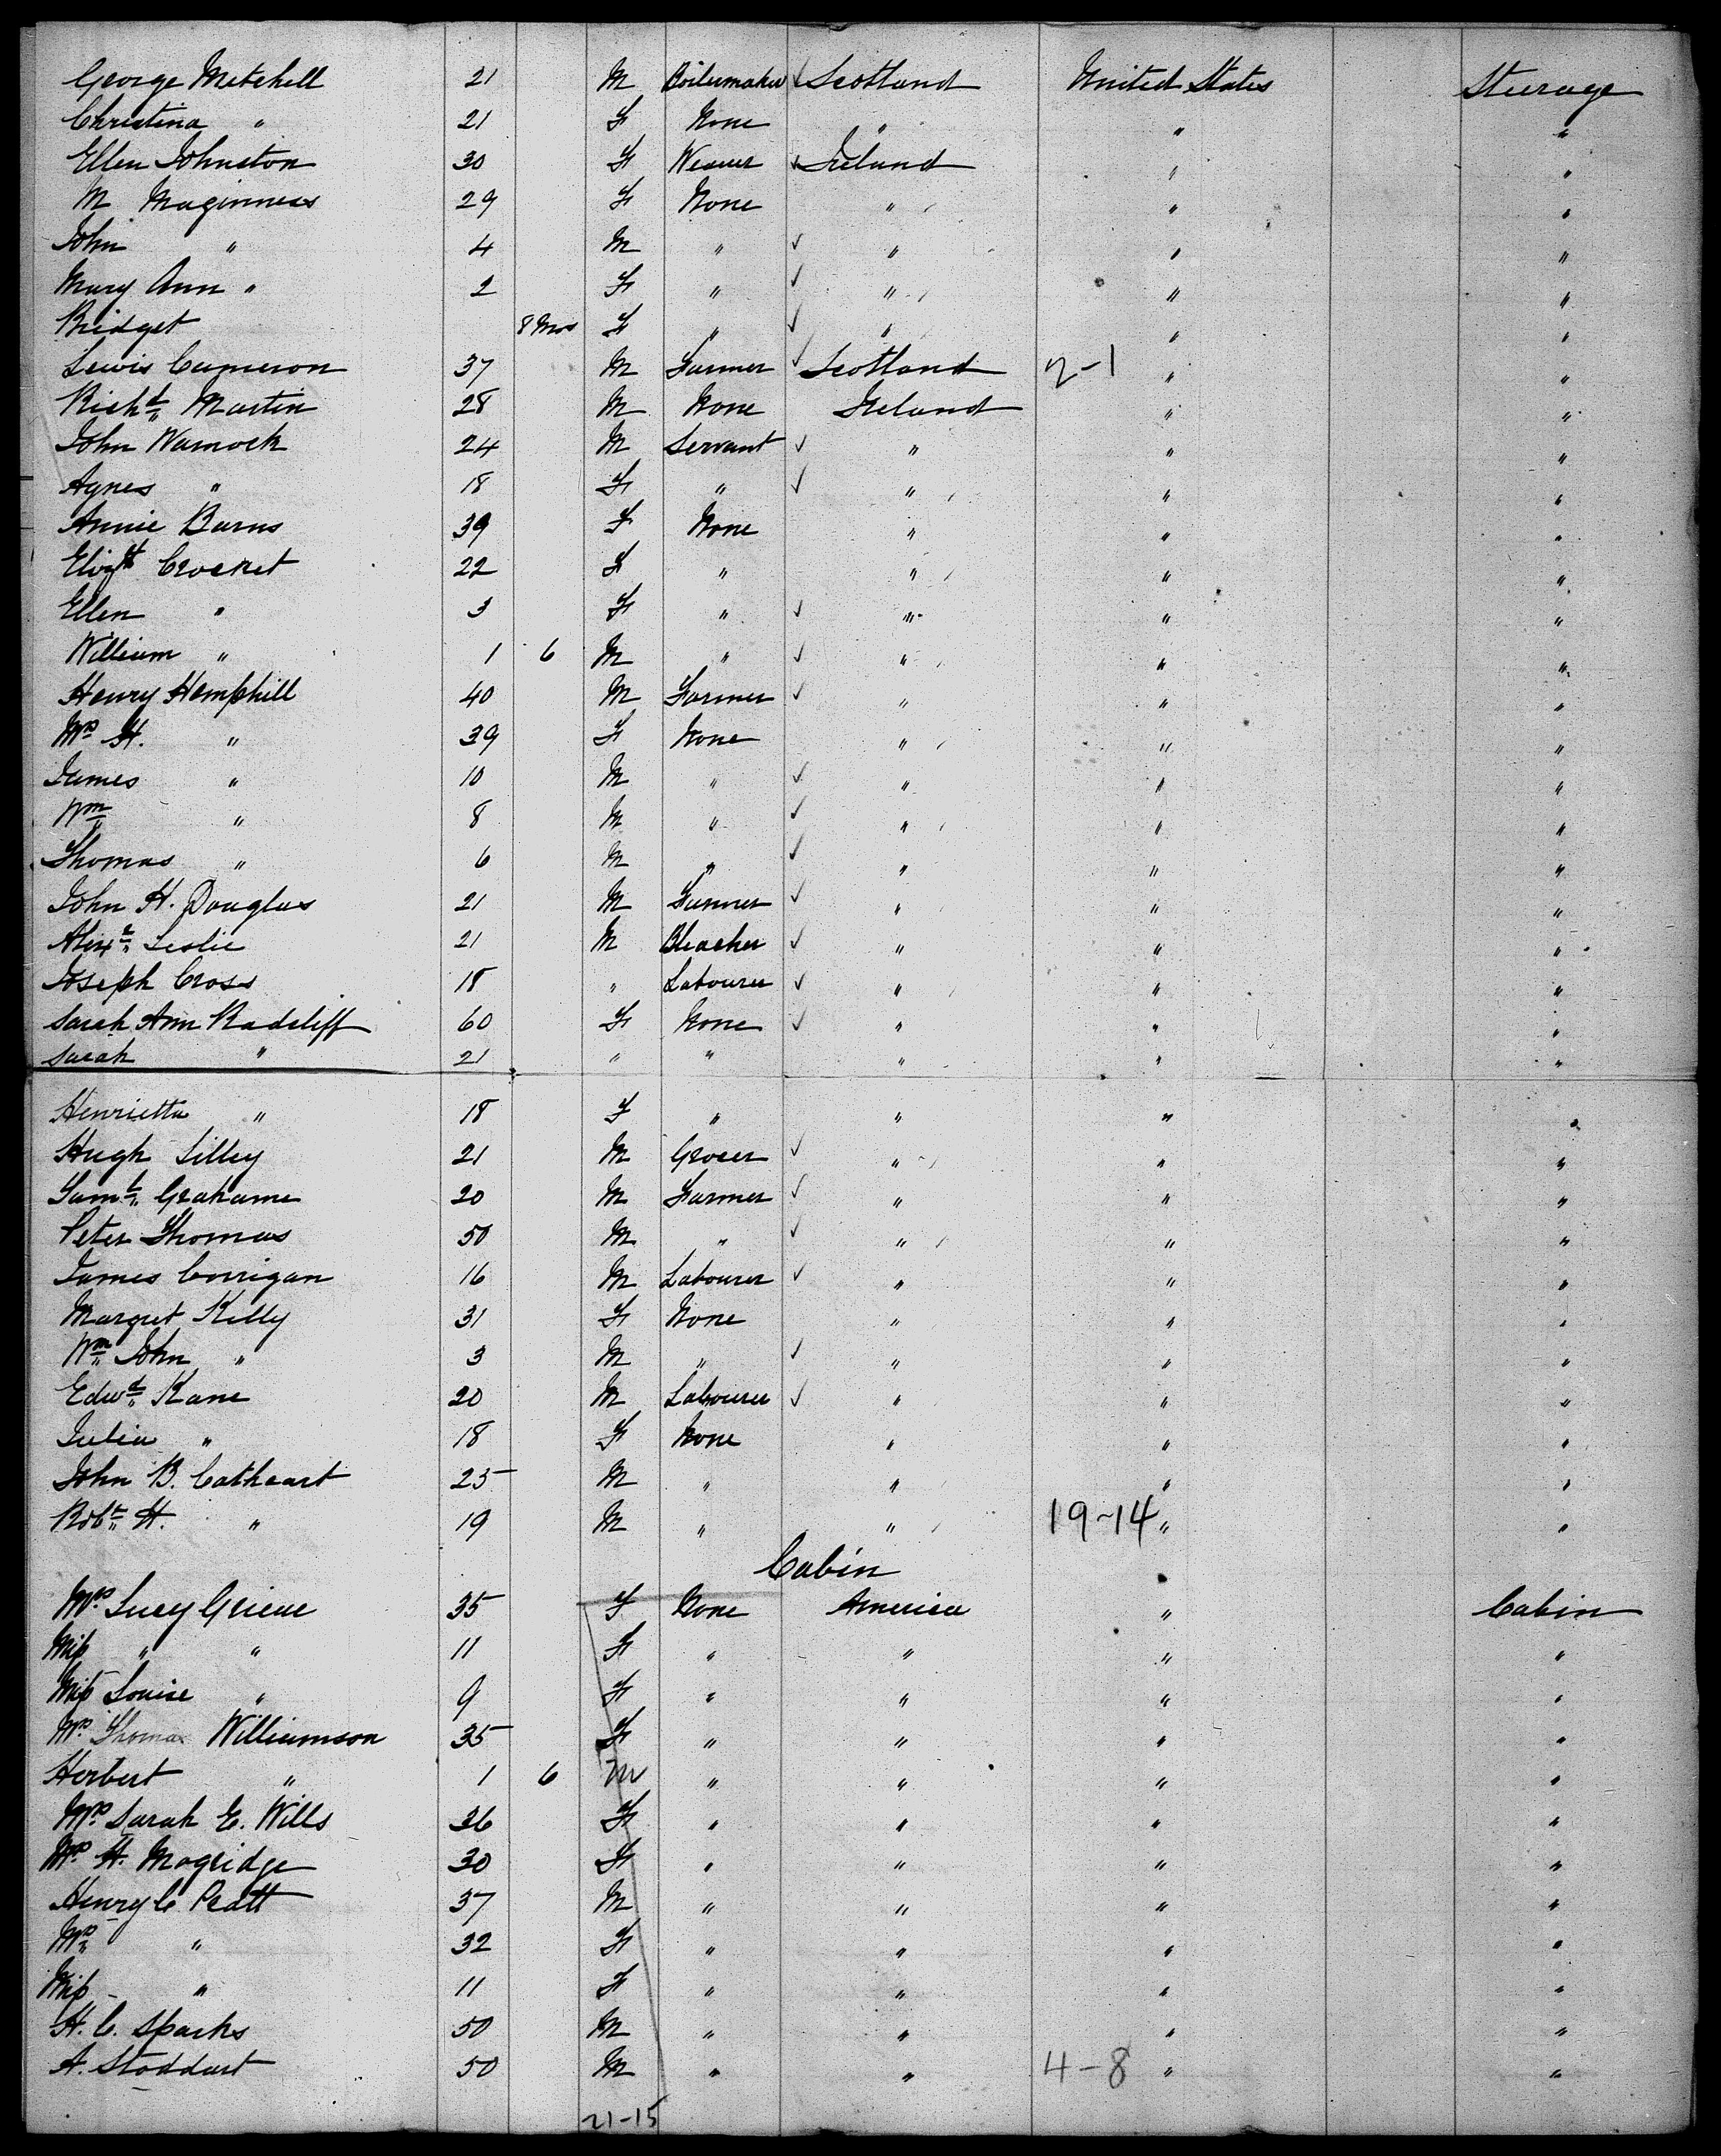 George Mitchell 21 M Boilermaker ✓ Scotland United States Steerage
Christina " 21 F None " " "
Ellen Johnston 30 F Weaver ✓ Ireland " "
M Maginness 29 F None " " "
John " 4 M " ✓ " " "
Mary Ann " 2 F " ✓ " " "
Bridget 8 Mos F " ✓ " " "
Lewis Cameron 37 M Farmer ✓ Scotland 2-1 " "
Richd Martin 28 M None Ireland " "
John Warnock 24 M Servant ✓ " " "
Agnes " 18 F " ✓ " " "
Annie Burns 39 F None " " "
Elizth Crocket 22 F " " " "
Ellen " 3 F " ✓ " " "
William " 1 6 M " ✓ " " "
Henry Hemphill 40 M Farmer ✓ " " "
Mrs H. " 39 F None " " "
James " 10 M " ✓ " " "
Wm " 8 M " ✓ " " "
Thomas " 6 M " ✓ " " "
John H. Douglas 21 M Farmer ✓ " " "
Alexr Leslie 21 M Bleacher ✓ " " "
Joseph Cross 18 " Labourer ✓ " " "
Sarah Ann Radcliff 60 F None ✓ " " "
Sarah " 21 " " " " "
Henrietta " 18 F " " " "
Hugh Lilley 21 M Grocer ✓ " " "
Saml Grahame 20 M Farmer ✓ " " "
Peter Thomas 50 M " ✓ " " "
James Corrigan 16 M Labourer ✓ " " "
Margret Kelly 31 F None " " "
Wm John " 3 M " ✓ " " "
Edwd Kane 20 M Labourer ✓ " " "
Julia " 18 F None " " "
John B. Cathcart 25 M " " " "
Robt H. " 19 M " " 19-14 " "
Cabin
Mrs Lucy Grieve 35 F None America " Cabin
Miss " " 11 F " " " "
Miss Louise " 9 F " " " "
Mrs Thomas Williamson 35 F " " " "
Herbert " 1 6 M " " " "
Mrs Sarah E. Wills 36 F " " " "
Mrs H. Mogridge 30 F " " " "
Henry C Pratt 37 M " " " "
Mrs " 32 F " " " "
Miss " 11 F " " " "
H. C. Sparks 50 M " " " "
A. Stoddart 50 M " " 4-8 " "
21-15